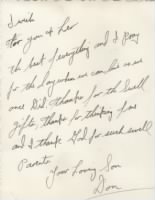 I wish
for you & her
the best of everything and I pray
for the day when we can be as we
once did. Thanks for the swell
gifts, thanks for thinking of me
and I thank God for such swell
Parents
Your Loving Son
Don